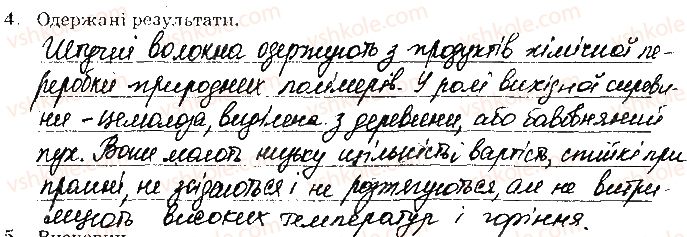 4. Одержані результати.
Штучні волокна одержують з продуктів хімічної пе-
реробки природних полімерів. У ролі вихідної сирови-
ни - целюлоза, виділена з деревини, або бавовняний
пух. Вони мають низьку щільність і вартість, стійкі при
пранні, не з'їдаються і не розтягуються, але не витри-
мують високих температур і горіння.
5. Висновки